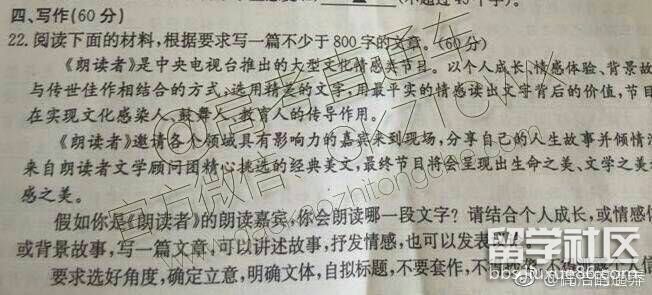 (不超过45个字)。
四、写作(60分)
22. 阅读下面的材料,根据要求写一篇不少于800字的文章。(60分)
《朗读者》是中央电视台推出的大型文化情感类节目。以个人成长、情感体验、背景故
与传世佳作相结合的方式,选用精美的文字,用最平实的情感读出文字背后的价值,节目
在实现文化感染人、鼓舞人、教育人的传导作用。
《朗读者》邀请各个领域具有影响力的嘉宾来到现场,分享自己的人生故事并倾情
来自朗读者文学顾问团精心挑选的经典美文,最终节目将会呈现出生命之美、文学之美
感之美。
假如你是《朗读者》的朗读嘉宾,你会朗读哪一段文字?请结合个人成长,或情感
或背景故事,写一篇文章,可以讲述故事,抒发情感,也可以发表
要求选好角度,确定立意,明确文体,自拟标题,不要套作,不得
官方微信
留学社区
bbs.liuxue86.com